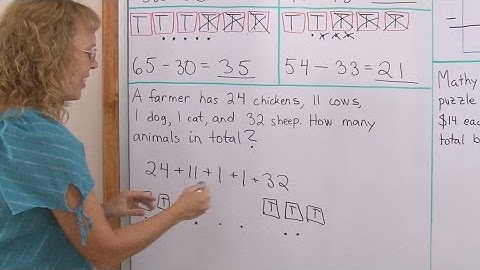 T T T
T T
65 - 30 = 35
54 - 33 = 21
A farmer has 24 chickens, 11 cows,
1 dog, 1 cat, and 32 sheep. How many
animals in total?
24 + 11 + 1 + 1 + 32
T T T T
Mathy
puzzle
$14 eac
total b